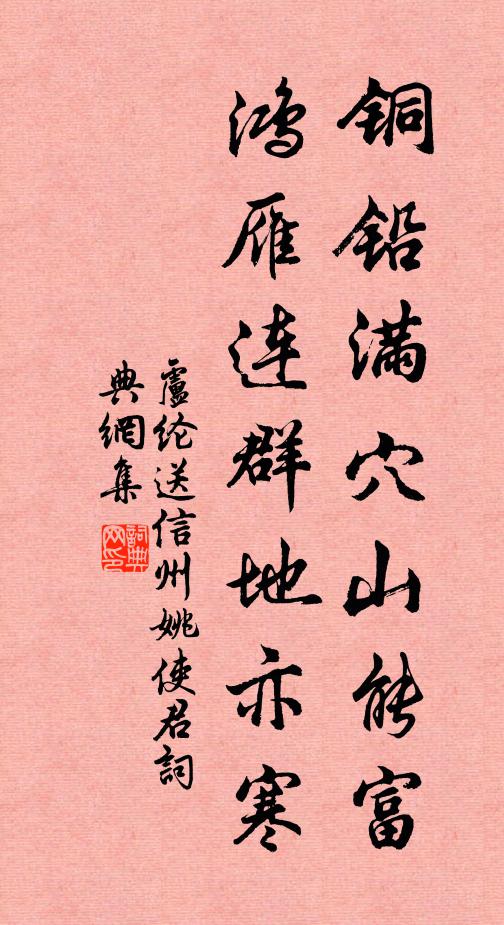 铜铅满穴山能富
鸿雁连群地亦寒
盧纶送信州姚使君詞
典網集
詞典
网印